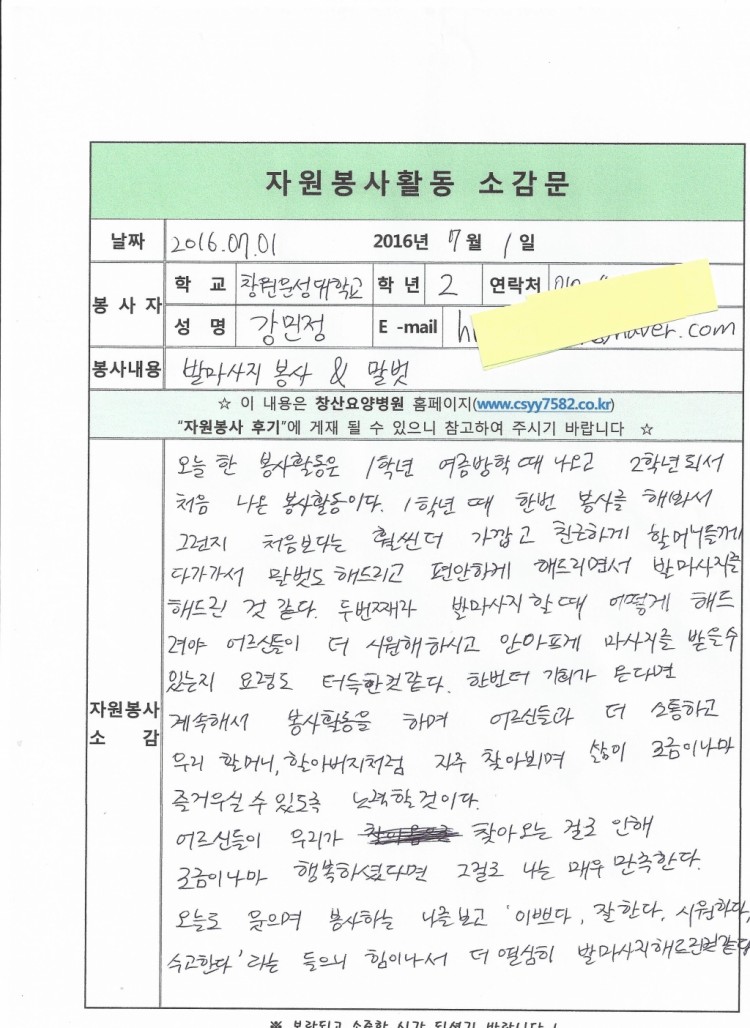 자원봉사활동 소감문
날짜 2016.07.01 2016년 7월 1일
봉사자 학교 창원문성대학교 학년 2 연락처
성명 강민정 E-mail naver.com
봉사내용 발마사지 봉사 & 말벗
☆ 이 내용은 창산요양병원 홈페이지(www.csyy7582.co.kr)
"자원봉사 후기"에 게재 될 수 있으니 참고하여 주시기 바랍니다 ☆
자원봉사 소감
오늘 한 봉사활동은 1학년 여름방학 때 나오고 2학년되서
처음 나온 봉사활동이다. 1학년 때 한번 봉사를 해봐서
그런지 처음보다는 훨씬더 가깝고 친근하게 할머니들께
다가가서 말벗도 해드리고 편안하게 해드리면서 발마사지를
해드린 것 같다. 두번째라 발마사지 할 때 어떻게 해드
려야 어르신들이 더 시원해 하시고 안아프게 마사지를 받을수
있는지 요령도 터득한것같다. 한번더 기회가 온다면
계속해서 봉사활동을 하며 어르신들과 더 소통하고
우리 할머니, 할아버지처럼 자주 찾아뵈며 삶이 조금이나마
즐거우실 수 있도록 노력할것이다.
어르신들이 우리가 찾아오는 걸로 인해
조금이나마 행복하셨다면 그걸로 나는 매우 만족한다.
오늘도 웃으며 봉사하는 나를보고 '이쁘다, 잘한다, 시원하다,
수고한다' 라는 들으니 힘이나서 더 열심히 발마사지해드린것같다